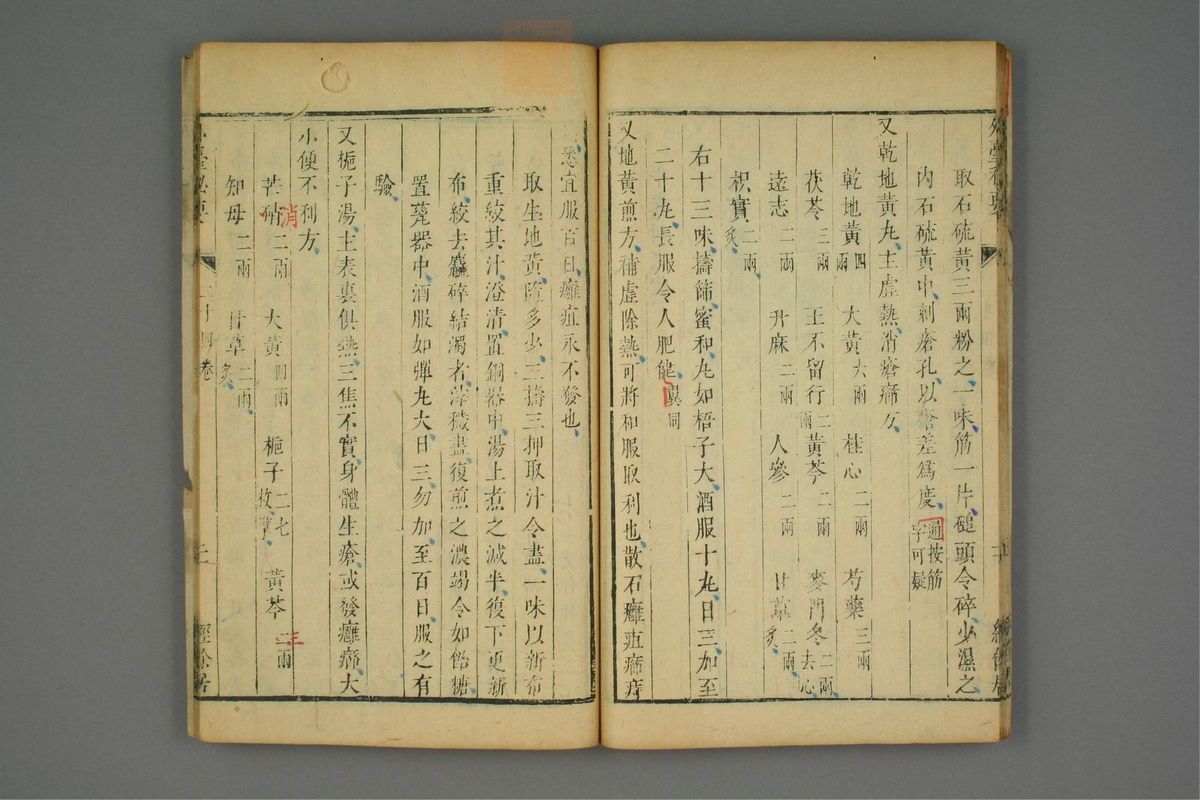 取石硫黃三兩粉之一味筋一片碰頭令碎少濕之
內石硫黃中刺瘡孔以瘡差爲度 通按筋字可疑
又乾地黃丸主虛熱消瘡癤方
乾地黃四兩 大黃六兩 桂心二兩 芍藥三兩
茯苓三兩 王不留行二兩 黃芩二兩 麥門冬二兩去心
遠志二兩 升麻二兩 人參二兩 甘草二兩炙
枳實二兩炙
右十三味擣篩蜜和丸如梧子大酒服十丸日三加至
二十丸長服令人肥健 翼同
又地黃煎方補虛除熱可將和服取利也散石癰疽癤痔
悉宜服百日癰疽永不發也
取生地黃隨多少三擣三押取汁令盡一味以新布
重絞其汁澄清置銅器中湯上煮之減半復下更新
布絞去麤碎結濁者滓穢盡復煎之濃竭令如飴糖
置甆器中酒服如彈丸大日三勿加至百日服之有
驗
又梔子湯主表裏俱熱三焦不實身體生瘡或發癰癤大
小便不利方
芒硝二兩 消 大黃四兩 梔子二七枚擘 黃芩二兩 三
知母二兩 甘草二兩炙
二十四卷
經餘居